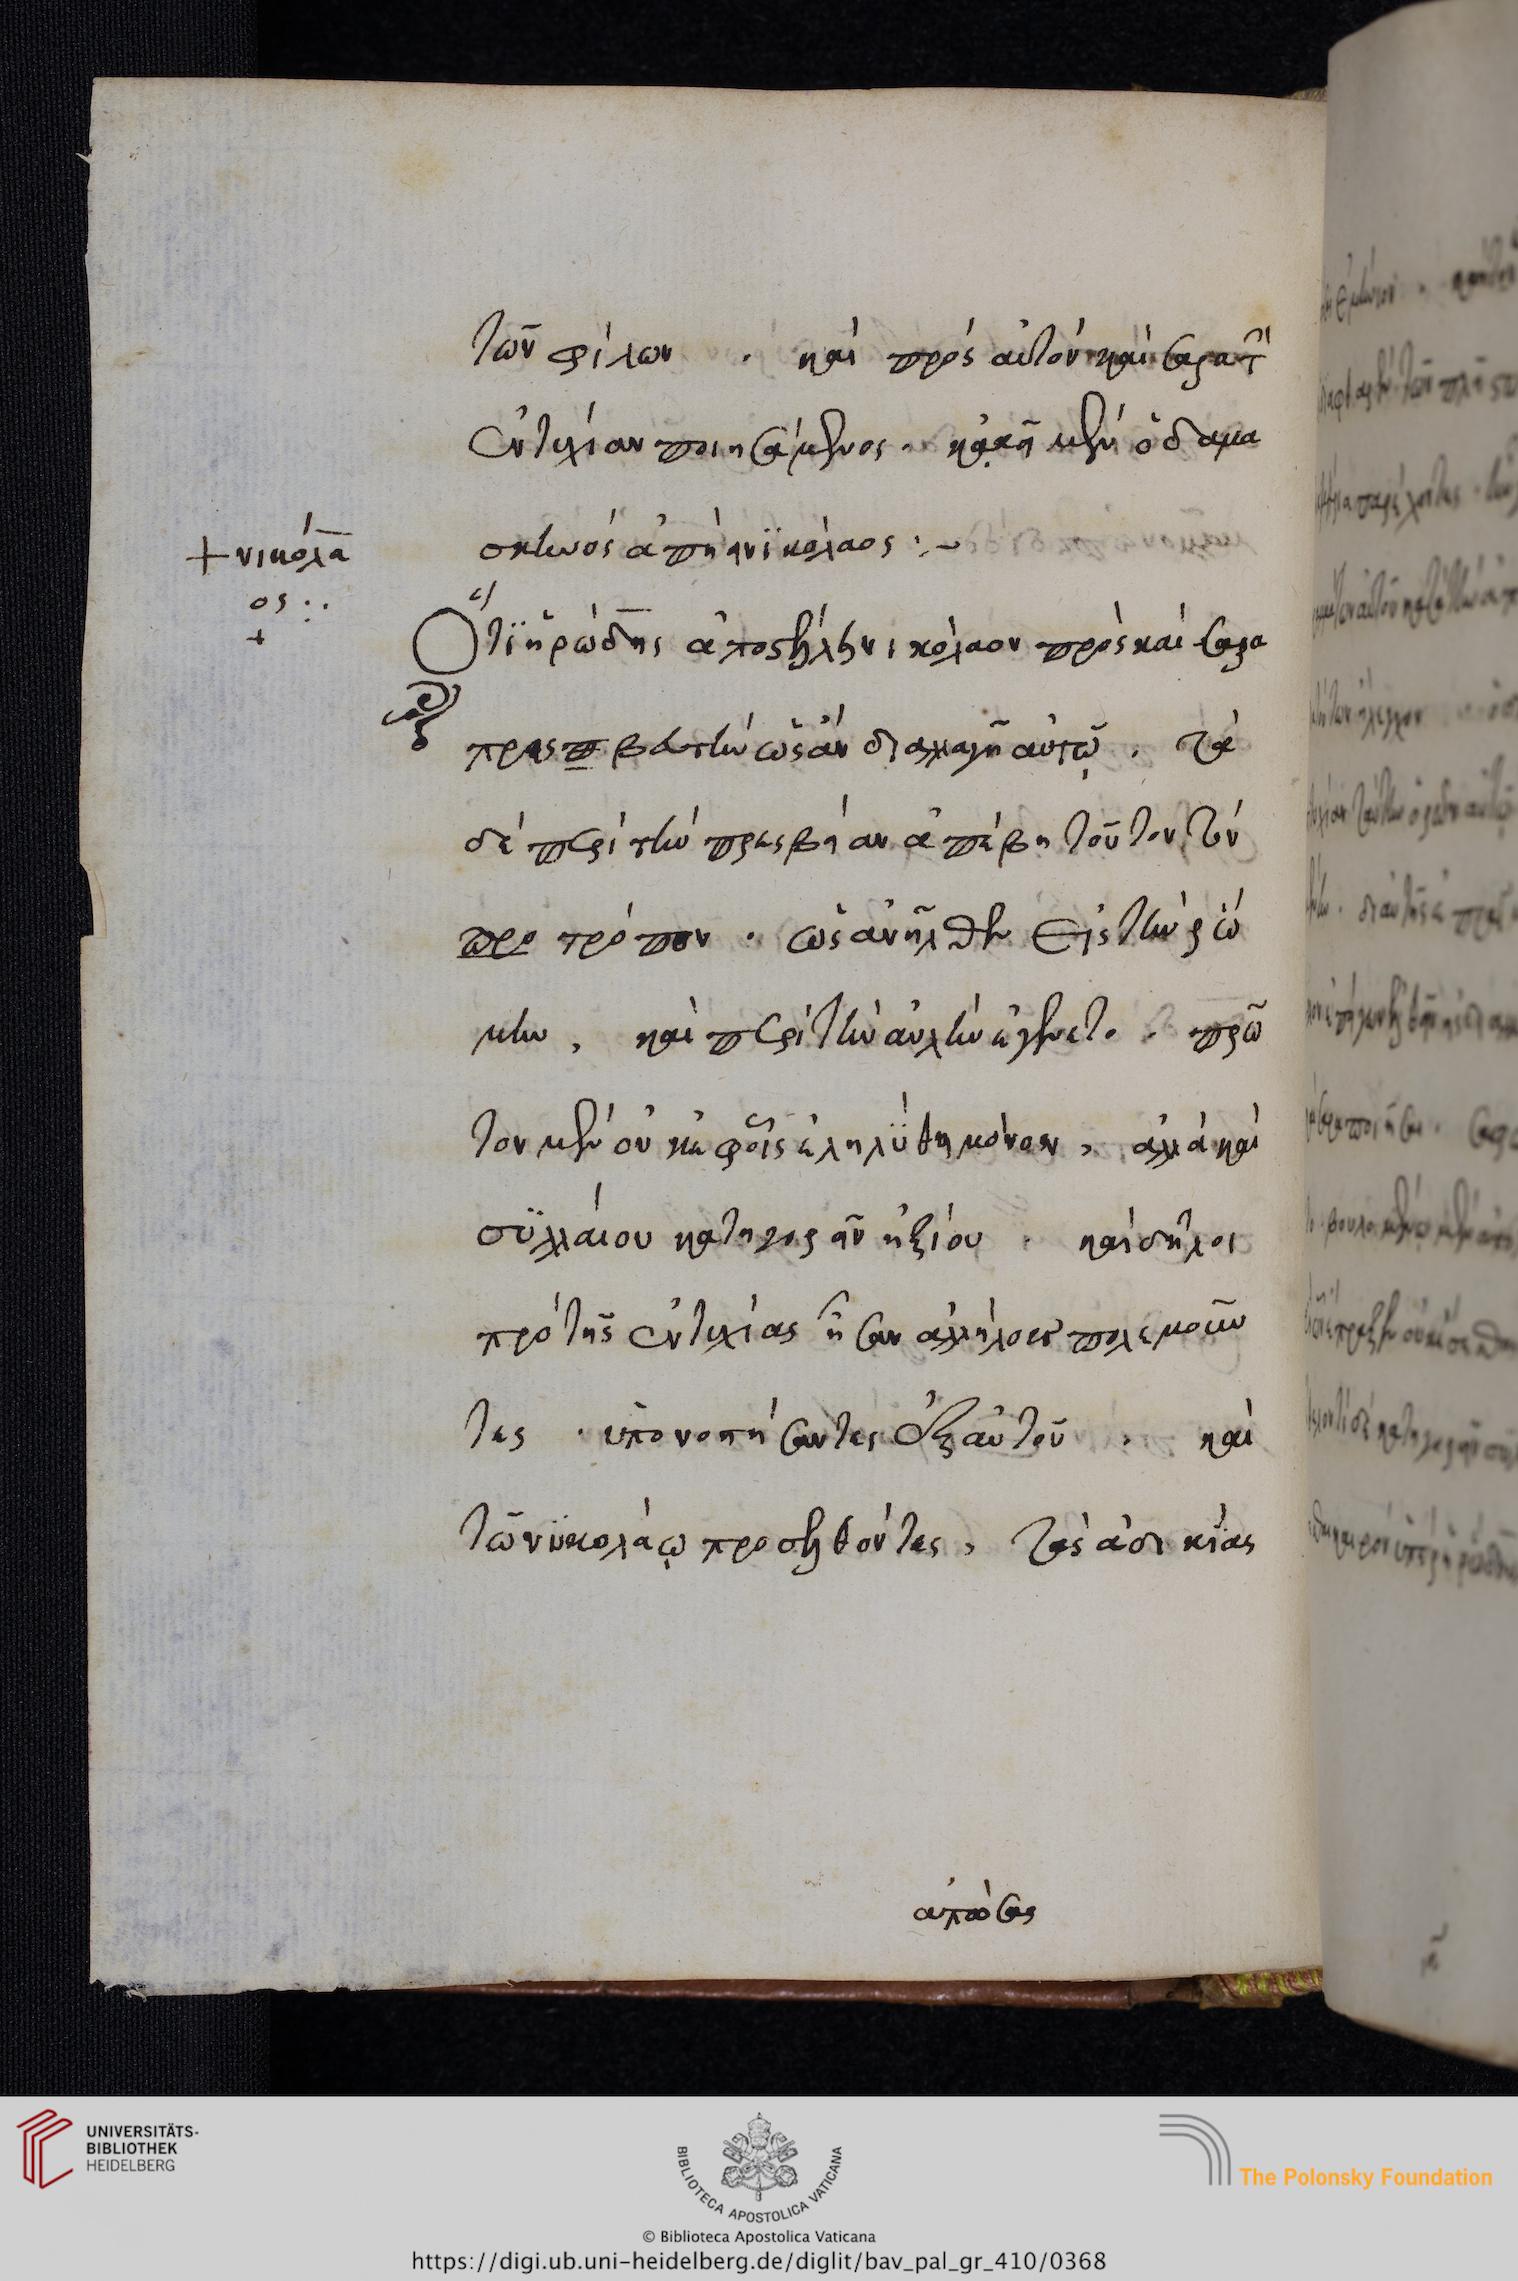 τῶν φίλων . καὶ πρὸς αὐτὸν καίσαρα τ
ἐντυχίαν ποιησάμενος . κἀκεῖ μὲν ὁ δαμα
σκηνὸς ἀπῄει νϊκόλαος :~
+ νικόλα
ος :.
+
Ὅτϊ ἡρώδης ἀποστέλλει νικόλαον πρὸς καίσαρα
πρεσβευτὴν ὡς ἂν διαλλαγῇ αὐτῷ . τὰ
δὲ περὶ τὴν πρεσβείαν ἀπέβη τοῦτον τὸν
τρόπον . ὡς ἀνῆλθεν εἰς τὴν ῥώ
μην , καὶ περὶ τὴν αὐλὴν ἐγένετο . πρῶ
τον μὲν οὐκ ἐφ' οἷς ἐληλϋθει μόνον , ἀλλὰ καὶ
σϋλλαίου κατηγορεῖν ἠξίου . καὶ δῆλοι
πρὸ τῆς ἐντυχίας ἦσαν ἀλλήλοις πολεμοῦν
τες . ὑπονοστήσαντες ἐξ αὐτοῦ . καὶ
τῶ νϊκολάῳ προσελθόντες , τὰς ἀδικίας
ἁπάσας
UNIVERSITÄTS-
BIBLIOTHEK
HEIDELBERG
BIBLIOTECA APOSTOLICA VATICANA
The Polonsky Foundation
© Biblioteca Apostolica Vaticana
https://digi.ub.uni-heidelberg.de/diglit/bav_pal_gr_410/0368